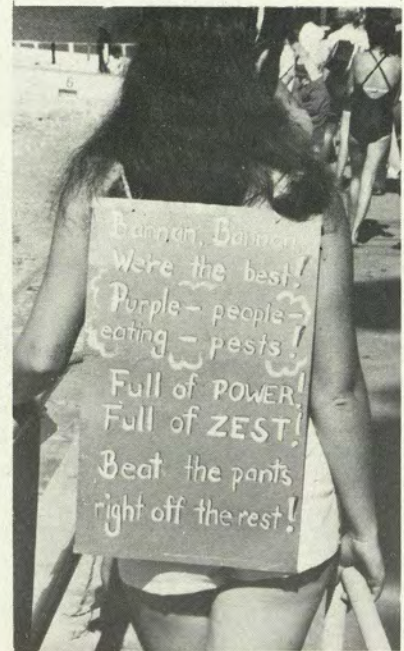 6
Bannan, Bannan
We're the best!
Purple - people -
eating - pests!
Full of POWER!
Full of ZEST!
Beat the pants
right off the rest!